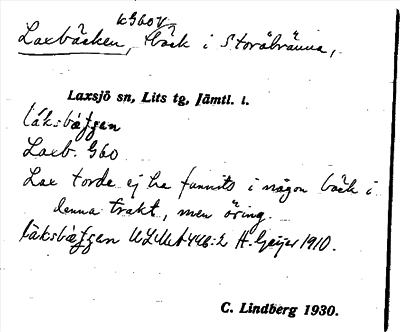 k G60 V
Laxbäcken, bäck i Storåbränna,
Laxsjö sn, Lits tg, Jämtl. l.
Laxb. G60
Lax torde ej ha funnits i någon bäck i
denna trakt, men öring.
ULMA 446:2 H. Geijer 1910.
C. Lindberg 1930.